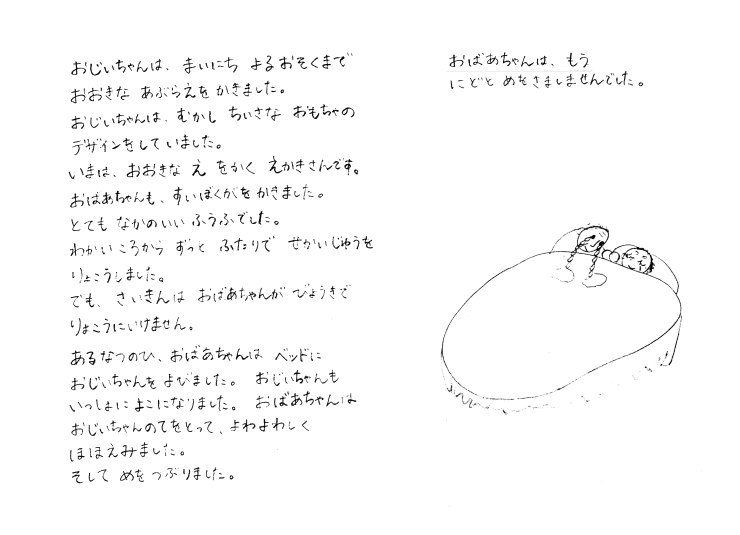 おじいちゃんは、まいにち よるおそくまで
おおきな あぶらえを かきました。
おじいちゃんは、むかし ちいさな おもちゃの
デザインをしていました。
いまは、おおきな え をかく えかきさんです。
おばあちゃんも、すいぼくがをかきました。
とても なかのいい ふうふでした。
わかいころから ずっと ふたりで せかいじゅうを
りょこうしました。
でも、さいきんは おばあちゃんが びょうきで
りょこうにいけません。
あるなつのひ、おばあちゃんは ベッドに
おじいちゃんを よびました。 おじいちゃんも
いっしょに よこになりました。 おばあちゃんは
おじいちゃんのてをとって、よわよわしく
ほほえみました。
そして めをつぶりました。
おばあちゃんは、もう
にどと めをさましませんでした。